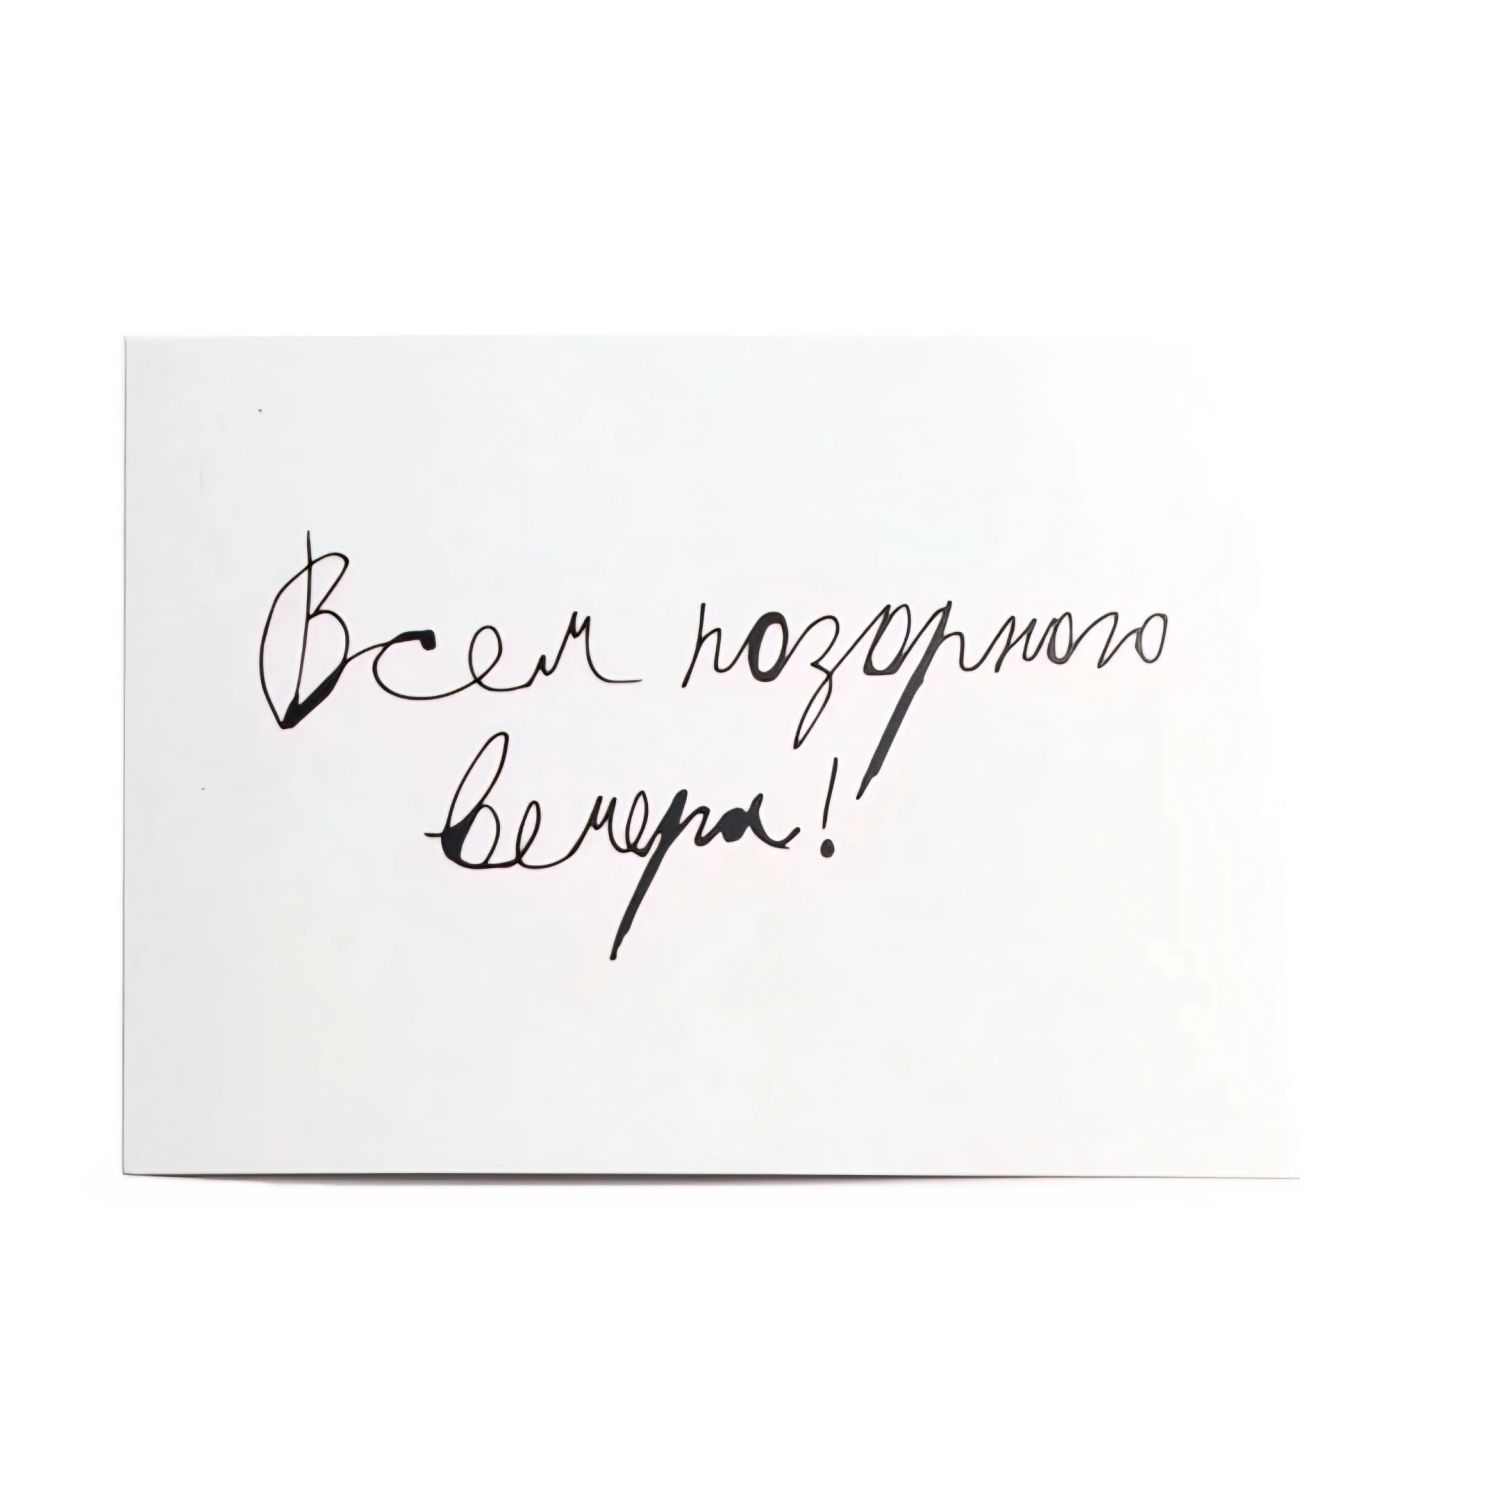 Всем позорного
вечера!